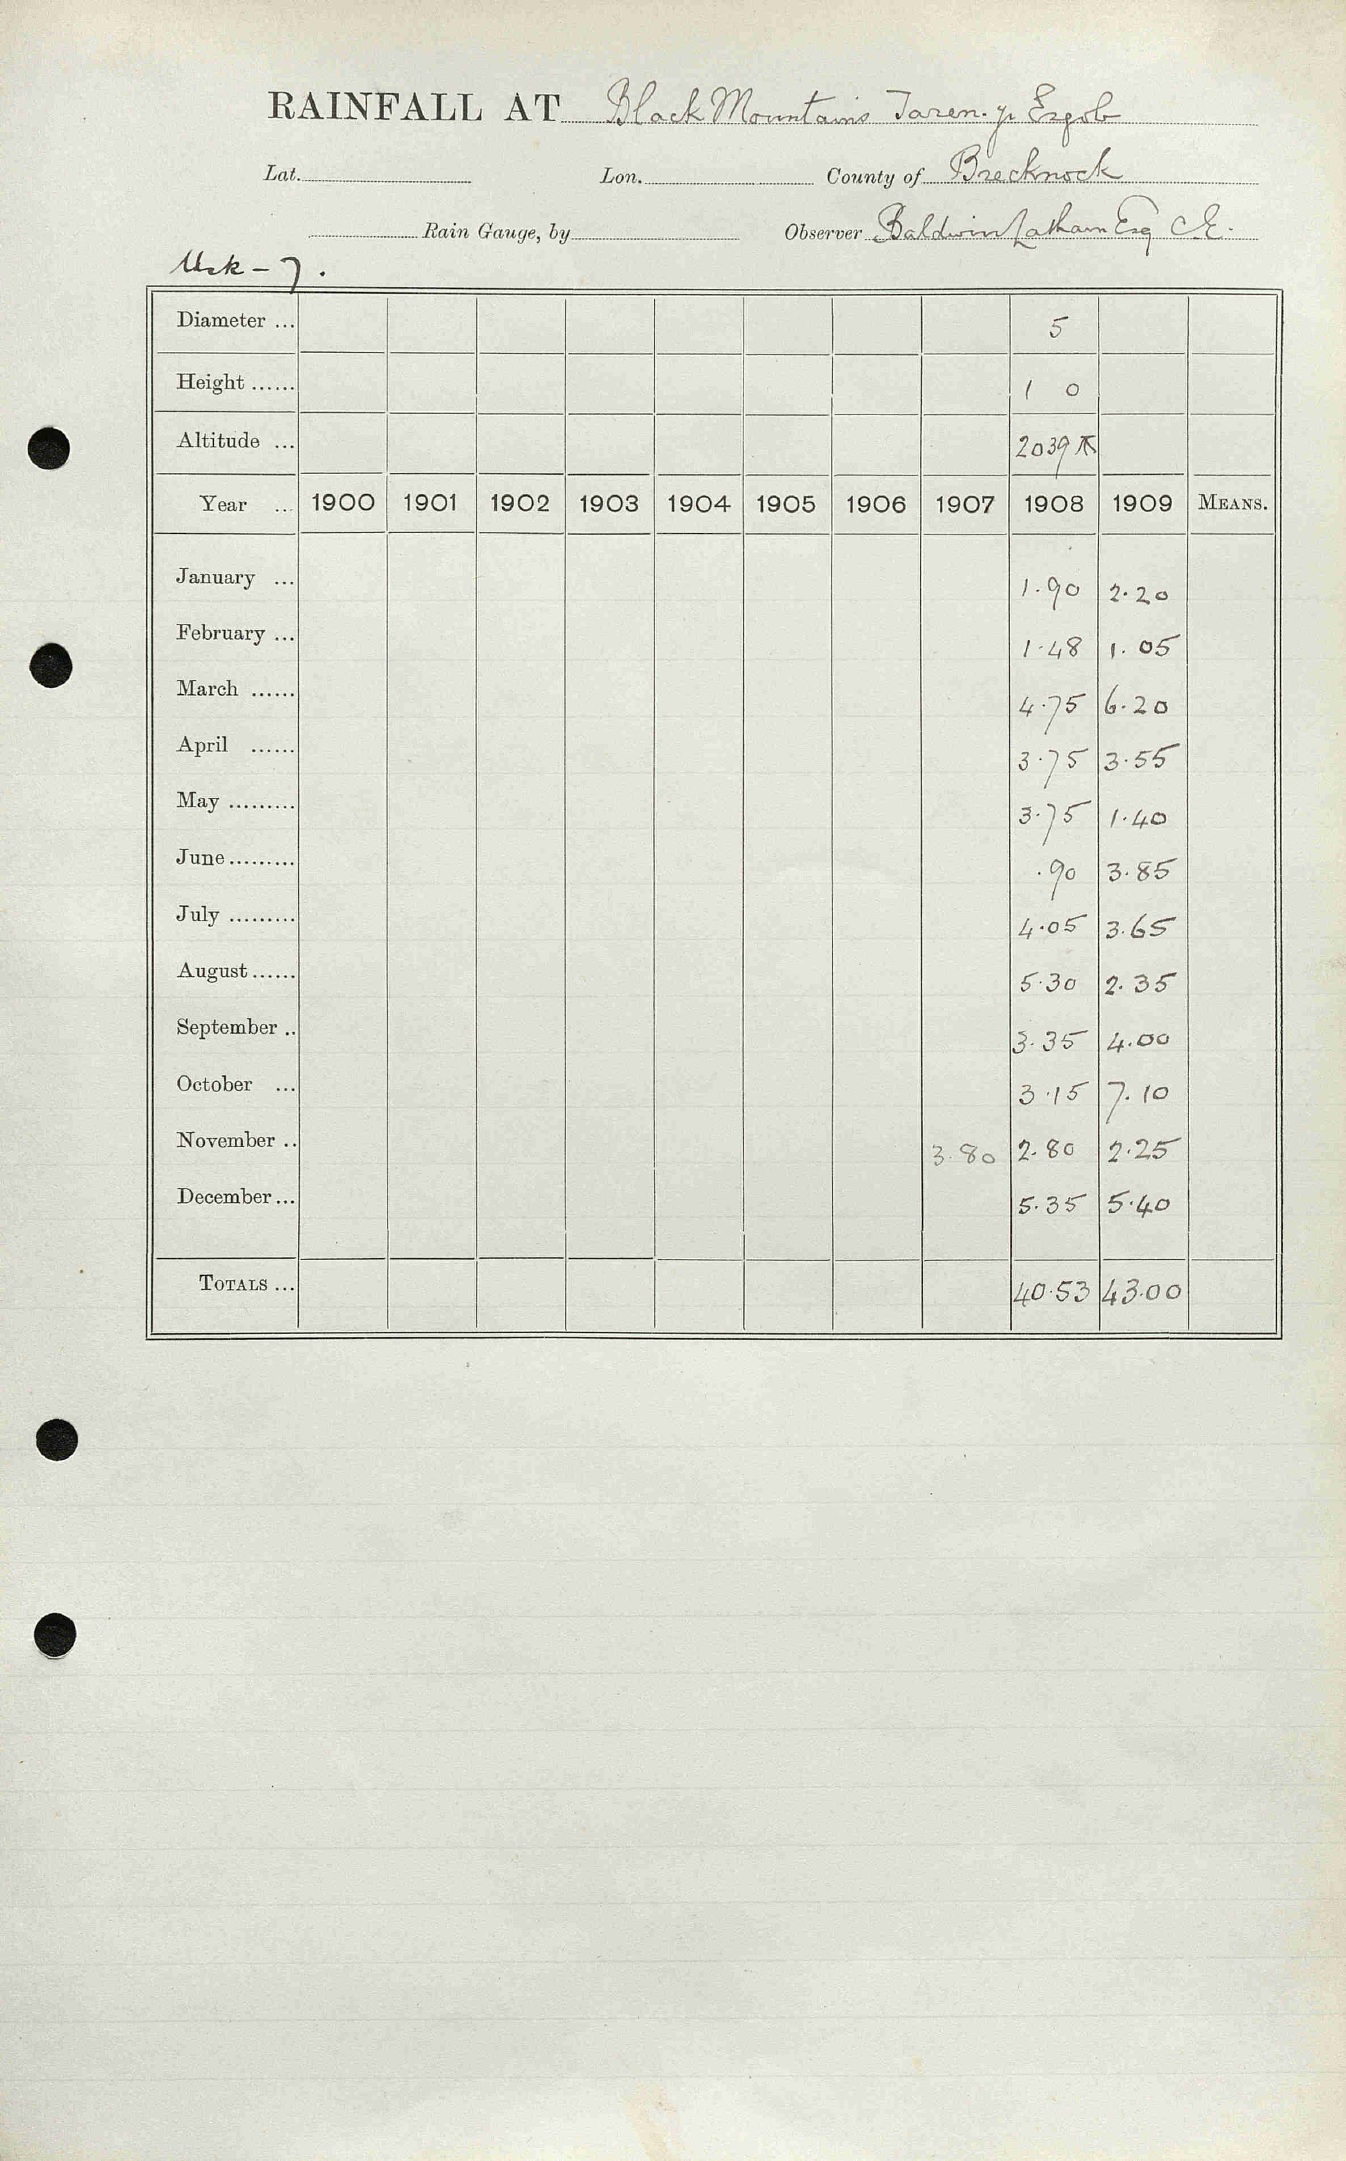 RAINFALL AT Black Mountains Taren. yr Esgob
Lat. Lon. County of Brecknock
Rain Gauge, by Observer Baldwin Latham Esq C.E.
Usk - 7.
Diameter ... 5
Height ...... 1 0
Altitude ... 2039
Year ... 1900 1901 1902 1903 1904 1905 1906 1907 1908 1909 MEANS.
January ... 1.90 2.20
February ... 1.48 1.05
March ...... 4.75 6.20
April ...... 3.75 3.55
May ......... 3.75 1.40
June ......... .90 3.85
July ......... 4.05 3.65
August ...... 5.30 2.35
September .. 3.35 4.00
October ... 3.15 7.10
November .. 3.80 2.80 2.25
December ... 5.35 5.40
TOTALS ... 40.53 43.00